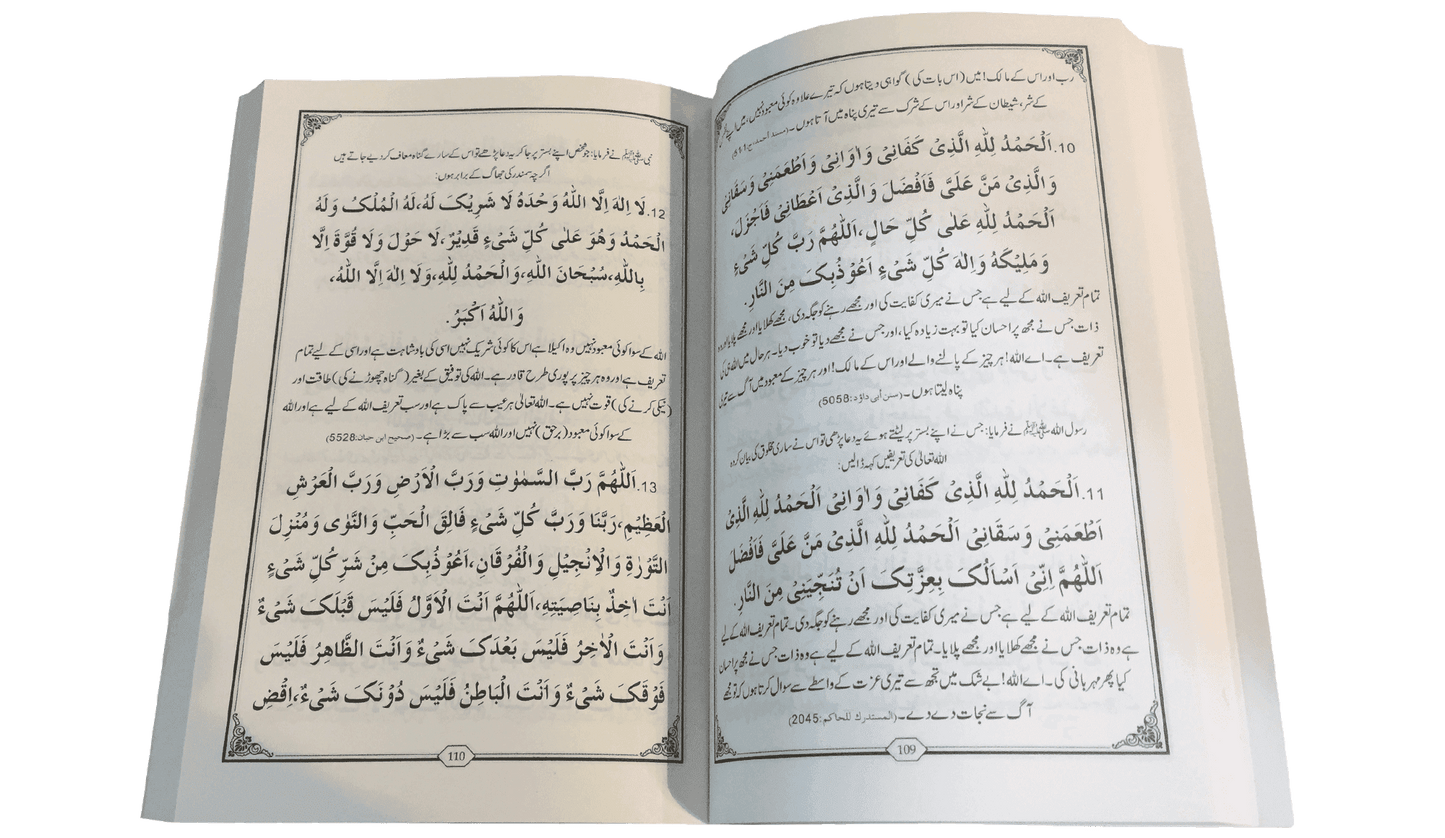 رب اور اس کے مالک! میں (اس بات کی) گواہی دیتا ہوں کہ تیرے علاوہ کوئی معبود نہیں، میں اپنے
کے شر، شیطان کے شر اور اس کے شرک سے تیری پناہ میں آتا ہوں۔ (مسند أحمد:ج511)
10. اَلْحَمْدُ لِلّٰهِ الَّذِىْ كَفَانِىْ وَاٰوَانِىْ وَاَطْعَمَنِىْ وَسَقَانِىْ
وَالَّذِىْ مَنَّ عَلَىَّ فَاَفْضَلَ وَالَّذِىْ اَعْطَانِىْ فَاَجْزَلَ،
اَلْحَمْدُ لِلّٰهِ عَلٰى كُلِّ حَالٍ،اَللّٰهُمَّ رَبَّ كُلِّ شَىْءٍ
وَمَلِيْكَهٗ وَاِلٰهَ كُلِّ شَىْءٍ اَعُوْذُبِكَ مِنَ النَّارِ.
تمام تعریف اللہ کے لیے ہے جس نے میری کفایت کی اور مجھے رہنے کو جگہ دی، مجھے کھلایا اور مجھے پلایا اور وہ
ذات جس نے مجھ پر احسان کیا تو بہت زیادہ کیا، اور جس نے مجھے دیا تو خوب دیا۔ ہر حال میں اللہ ہی کی
تعریف ہے۔ اے اللہ! ہر چیز کے پالنے والے اور اس کے مالک! اور ہر چیز کے معبود میں آگ سے تیری
پناہ لیتا ہوں۔ (سنن أبی داؤد:5058)
رسول اللہ ﷺ نے فرمایا: جس نے اپنے بستر پر لیٹتے ہوئے یہ دعا پڑھی تو اس نے ساری مخلوق کی بیان کردہ
اللہ تعالیٰ کی تعریفیں کہہ ڈالیں:
11. اَلْحَمْدُ لِلّٰهِ الَّذِىْ كَفَانِىْ وَاٰوَانِىْ اَلْحَمْدُ لِلّٰهِ الَّذِىْ
اَطْعَمَنِىْ وَسَقَانِىْ اَلْحَمْدُ لِلّٰهِ الَّذِىْ مَنَّ عَلَىَّ فَاَفْضَلَ
اَللّٰهُمَّ اِنِّىْ اَسْاَلُكَ بِعِزَّتِكَ اَنْ تُنَجِّيَنِىْ مِنَ النَّارِ.
تمام تعریف اللہ کے لیے ہے جس نے میری کفایت کی اور مجھے رہنے کو جگہ دی۔ تمام تعریف اللہ کے لیے
ہے وہ ذات جس نے مجھے کھلایا اور مجھے پلایا۔ تمام تعریف اللہ کے لیے ہے وہ ذات جس نے مجھ پر احسان
کیا پھر مہربانی کی۔ اے اللہ! بے شک میں تجھ سے تیری عزت کے واسطے سے سوال کرتا ہوں کہ تو مجھے
آگ سے نجات دے دے۔ (المستدرك للحاكم:2045)
109
نبی ﷺ نے فرمایا: جو شخص اپنے بستر پر جا کر یہ دعا پڑھے تو اس کے سارے گناہ معاف کر دیے جاتے ہیں
اگرچہ سمندر کی جھاگ کے برابر ہوں:
12. لَا اِلٰهَ اِلَّا اللّٰهُ وَحْدَهٗ لَا شَرِيْكَ لَهٗ،لَهُ الْمُلْكُ وَلَهُ
الْحَمْدُ وَهُوَ عَلٰى كُلِّ شَىْءٍ قَدِيْرٌ،لَا حَوْلَ وَلَا قُوَّةَ اِلَّا
بِاللّٰهِ،سُبْحَانَ اللّٰهِ،وَالْحَمْدُ لِلّٰهِ،وَلَا اِلٰهَ اِلَّا اللّٰهُ،
وَاللّٰهُ اَكْبَرُ.
اللہ کے سوا کوئی معبود نہیں وہ اکیلا ہے اس کا کوئی شریک نہیں اسی کی بادشاہت ہے اور اسی کے لیے تمام
تعریف ہے اور وہ ہر چیز پر پوری طرح قادر ہے۔ اللہ کی توفیق کے بغیر (گناہ چھوڑنے کی) طاقت اور
(نیکی کرنے کی) قوت نہیں ہے۔ اللہ تعالیٰ ہر عیب سے پاک ہے اور سب تعریف اللہ کے لیے ہے اور اللہ
کے سوا کوئی معبود (برحق) نہیں اور اللہ سب سے بڑا ہے۔ (صحيح ابن حبان:5528)
13. اَللّٰهُمَّ رَبَّ السَّمٰوٰتِ وَرَبَّ الْاَرْضِ وَرَبَّ الْعَرْشِ
الْعَظِيْمِ،رَبَّنَا وَرَبَّ كُلِّ شَىْءٍ فَالِقَ الْحَبِّ وَالنَّوٰى وَمُنْزِلَ
التَّوْرٰةِ وَالْاِنْجِيْلِ وَالْفُرْقَانِ،اَعُوْذُبِكَ مِنْ شَرِّ كُلِّ شَىْءٍ
اَنْتَ اٰخِذٌ بِنَاصِيَتِهٖ،اَللّٰهُمَّ اَنْتَ الْاَوَّلُ فَلَيْسَ قَبْلَكَ شَىْءٌ
وَاَنْتَ الْاٰخِرُ فَلَيْسَ بَعْدَكَ شَىْءٌ وَاَنْتَ الظَّاهِرُ فَلَيْسَ
فَوْقَكَ شَىْءٌ وَاَنْتَ الْبَاطِنُ فَلَيْسَ دُوْنَكَ شَىْءٌ،اِقْضِ
110